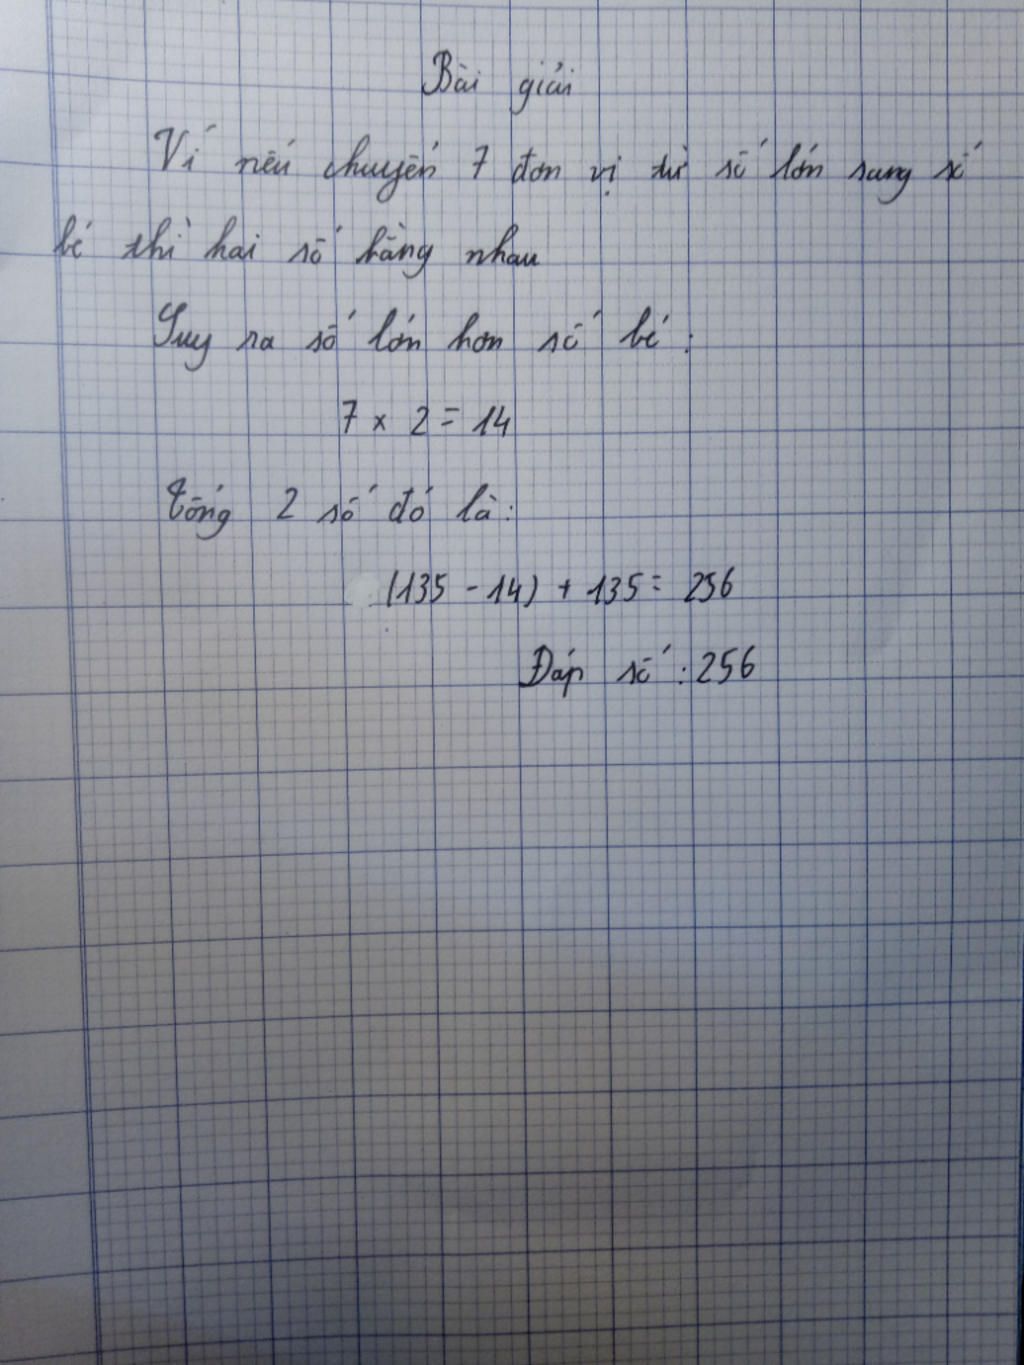 Bài giải
Vì nếu chuyển 7 đơn vị từ số lớn sang số
bé thì hai số bằng nhau
Suy ra số lớn hơn số bé :
7 x 2 = 14
Tổng 2 số đó là :
(135 - 14) + 135 = 256
Đáp số : 256